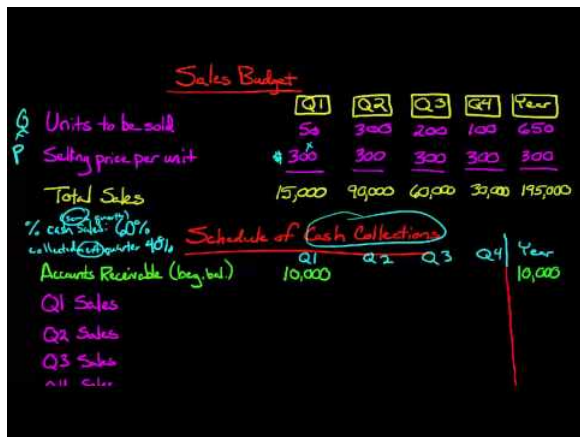 Sales Budget
Q1 Q2 Q3 Q4 Year
Q Units to be sold 50 300 200 100 650
x x
P Selling price per unit $ 300 300 300 300 300
Total Sales 15,000 90,000 60,000 30,000 195,000
(same quarter)
% cash sales: 60%
Schedule of Cash Collections
collected next quarter 40%
Q1 Q2 Q3 Q4 Year
Accounts Receivable (beg. bal.) 10,000 10,000
Q1 Sales
Q2 Sales
Q3 Sales
Q4 Sales